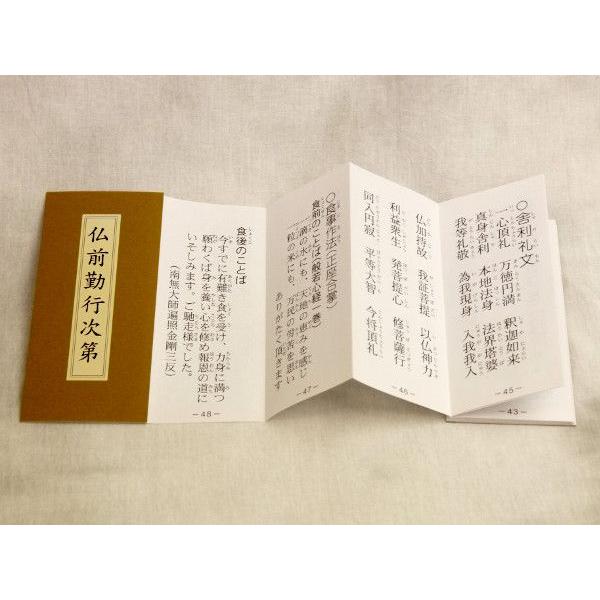 ○舎利礼文
一心頂礼 万徳円満 釈迦如来
真身舎利 本地法身 法界塔婆
我等礼敬 為我現身 入我我入
－45－
－43－
仏加持故 我証菩提 以仏神力
利益衆生 発菩提心 修菩薩行
同入円寂 平等大智 今将頂礼
－46－
○食事作法(正座合掌)
食前のことば(般若心経一巻)
一滴の水にも、天地の恵みを感じ
一粒の米にも、万民の労苦を思い
ありがたく頂きます
－47－
食後のことば
今すでに有難き食を受け、力身に満つ
願わくば身を養い心を修め報恩の道に
いそしみます。ご馳走様でした。
(南無大師遍照金剛三反)
－48－
仏前勤行次第